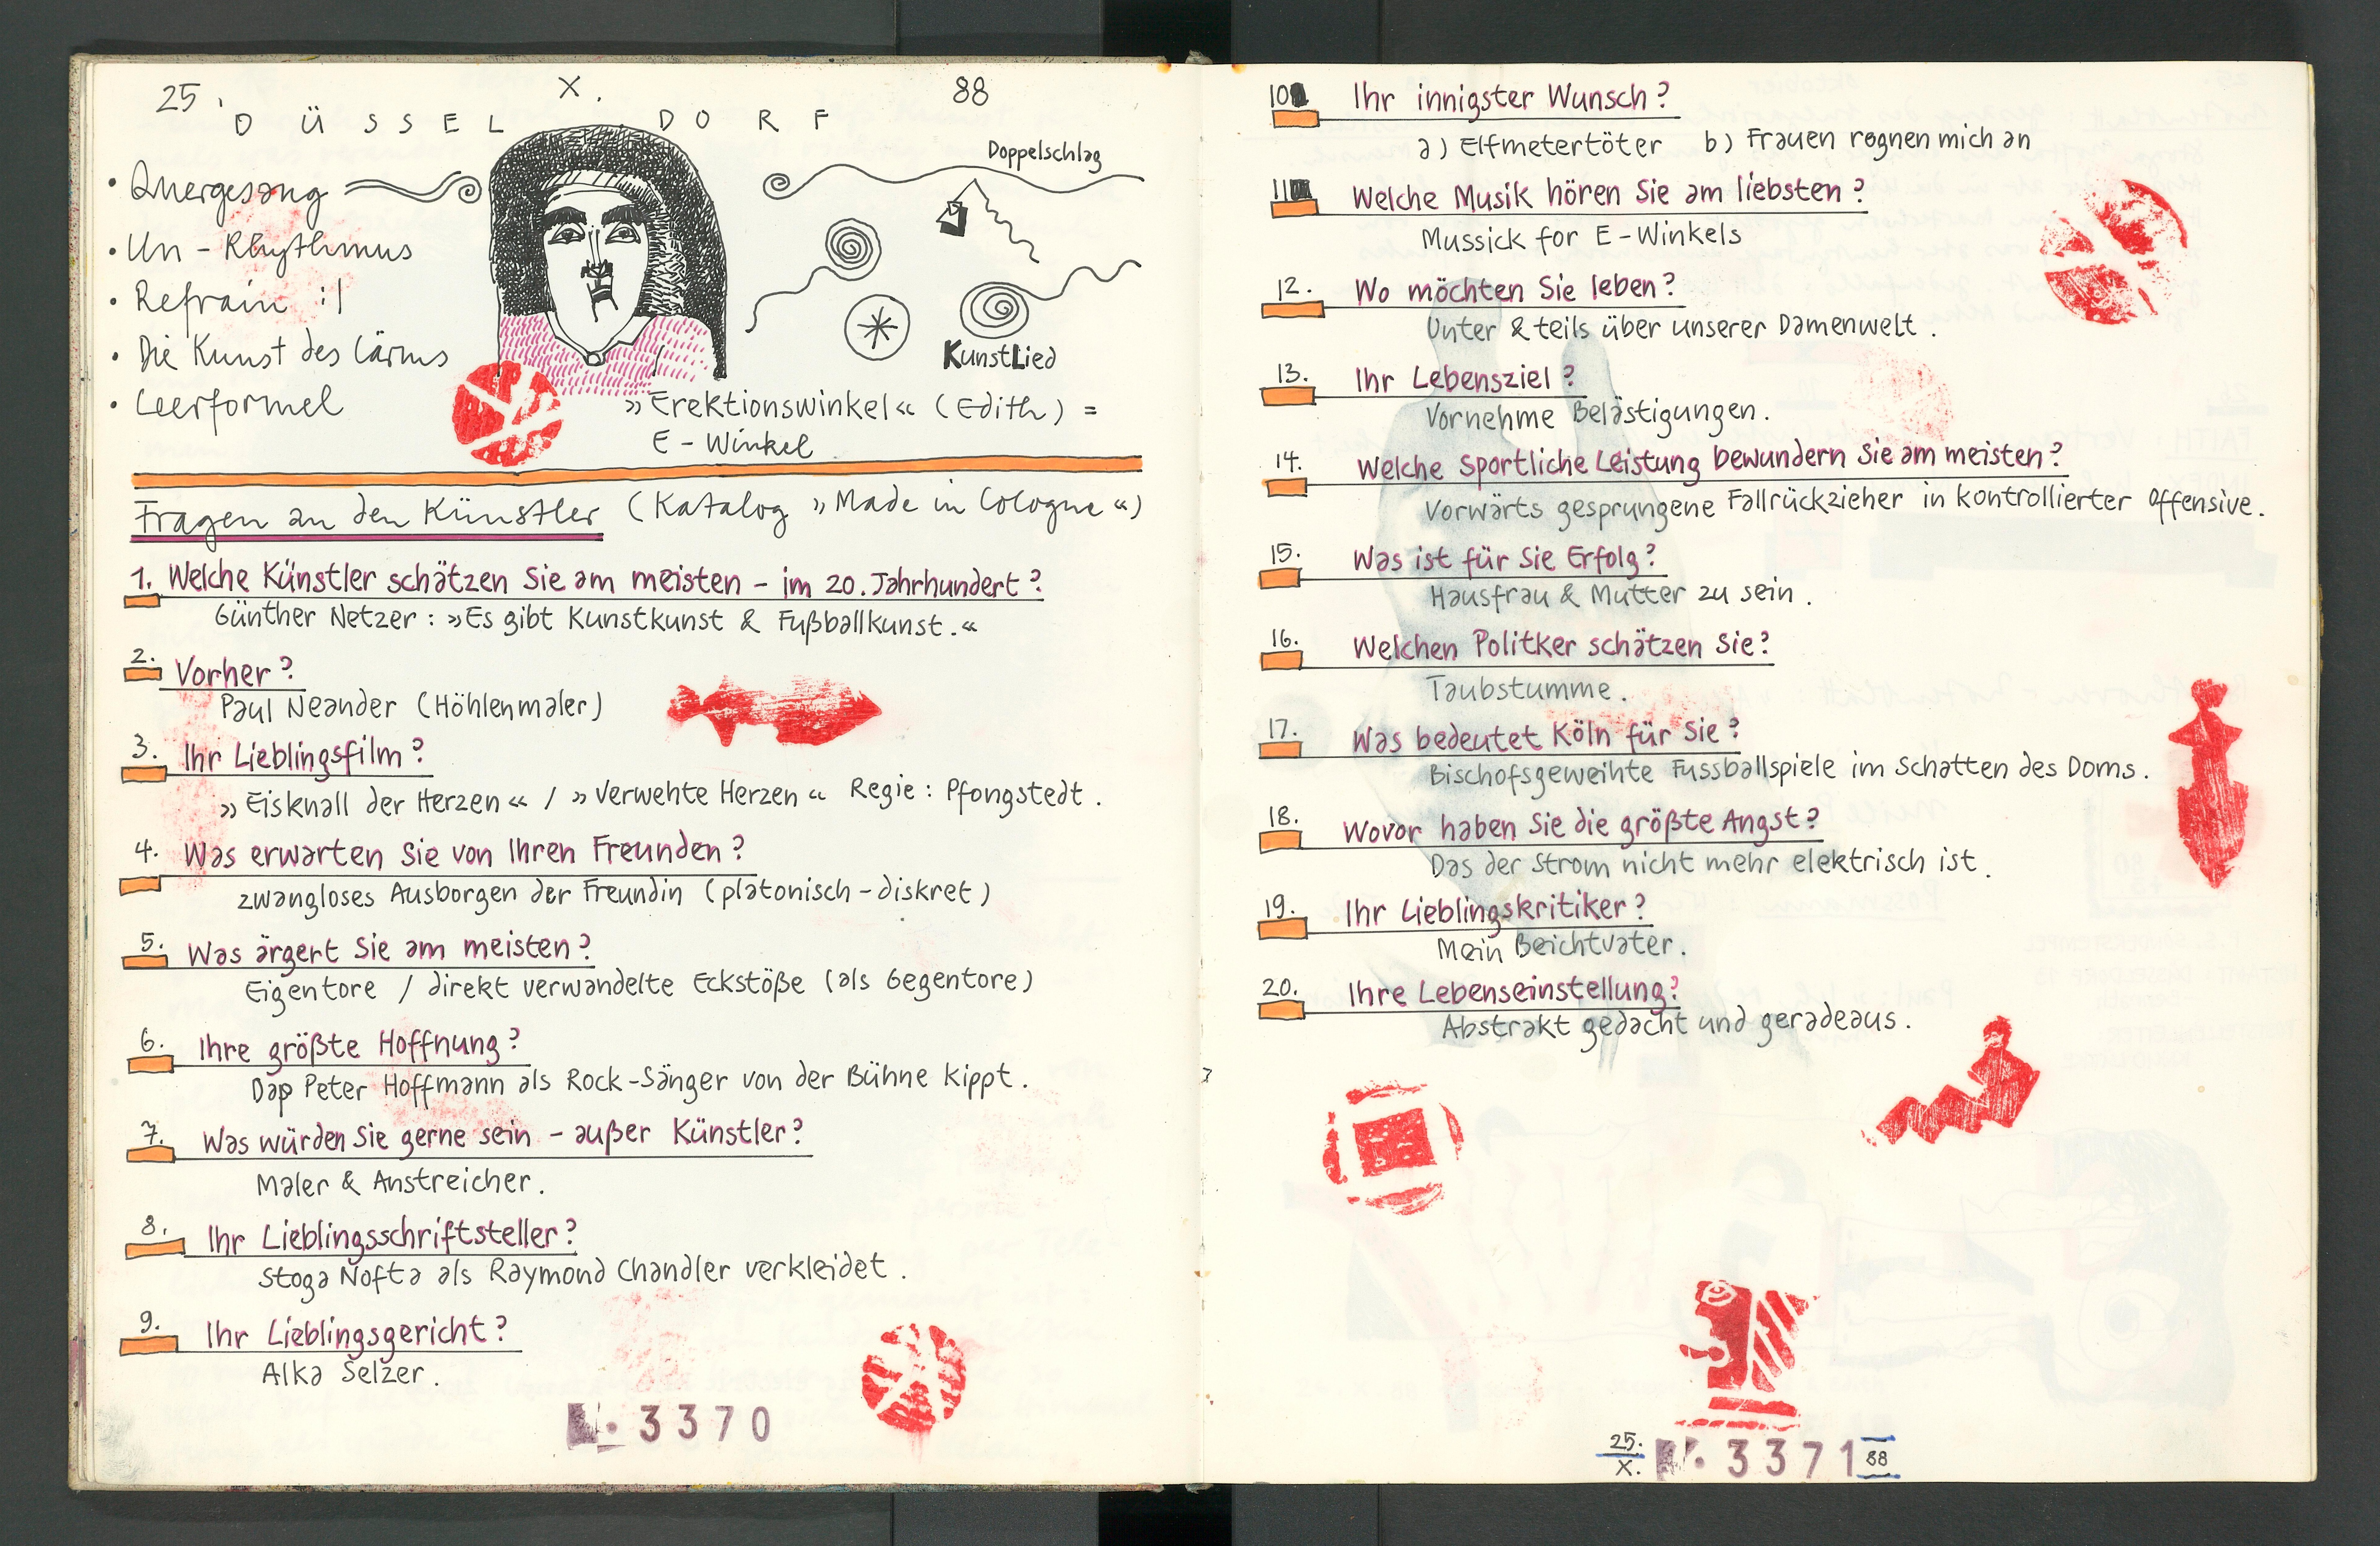 25. X. 88
DÜSSELDORF
• Quergesang
• Un-Rhythmus
• Refrain :|
• Die Kunst des Lärms
• Leerformel
Doppelschlag
KunstLied
»Erektionswinkel« (Edith) =
E-Winkel
Fragen an den Künstler (Katalog »Made in Cologne«)
1. Welche Künstler schätzen Sie am meisten – im 20. Jahrhundert?
Günther Netzer: »Es gibt Kunstkunst & Fußballkunst.«
2. Vorher?
Paul Neander (Höhlenmaler)
3. Ihr Lieblingsfilm?
»Eisknall der Herzen« / »Verwehte Herzen« Regie: Pfongstedt.
4. Was erwarten Sie von Ihren Freunden?
zwangloses Ausborgen der Freundin (platonisch-diskret)
5. Was ärgert Sie am meisten?
Eigentore / direkt verwandelte Eckstöße (als Gegentore)
6. Ihre größte Hoffnung?
Daß Peter Hoffmann als Rock-Sänger von der Bühne kippt.
7. Was würden Sie gerne sein – außer Künstler?
Maler & Anstreicher.
8. Ihr Lieblingsschriftsteller?
Stoga Nofta als Raymond Chandler verkleidet.
9. Ihr Lieblingsgericht?
Alka Selzer.
3370
10 Ihr innigster Wunsch?
a) Elfmetertöter b) Frauen regnen mich an
11 Welche Musik hören Sie am liebsten?
Mussick for E-Winkels
12. Wo möchten Sie leben?
Unter & teils über unserer Damenwelt.
13. Ihr Lebensziel?
Vornehme Belästigungen.
14. Welche sportliche Leistung bewundern Sie am meisten?
Vorwärts gesprungene Fallrückzieher in kontrollierter Offensive.
15. Was ist für Sie Erfolg?
Hausfrau & Mutter zu sein.
16. Welchen Politker schätzen Sie?
Taubstumme.
17. Was bedeutet Köln für Sie?
Bischofsgeweihte Fussballspiele im Schatten des Doms.
18. Wovor haben Sie die größte Angst?
Das der Strom nicht mehr elektrisch ist.
19. Ihr Lieblingskritiker?
Mein Beichtvater.
20. Ihre Lebenseinstellung?
Abstrakt gedacht und geradeaus.
25. X. 3371 88